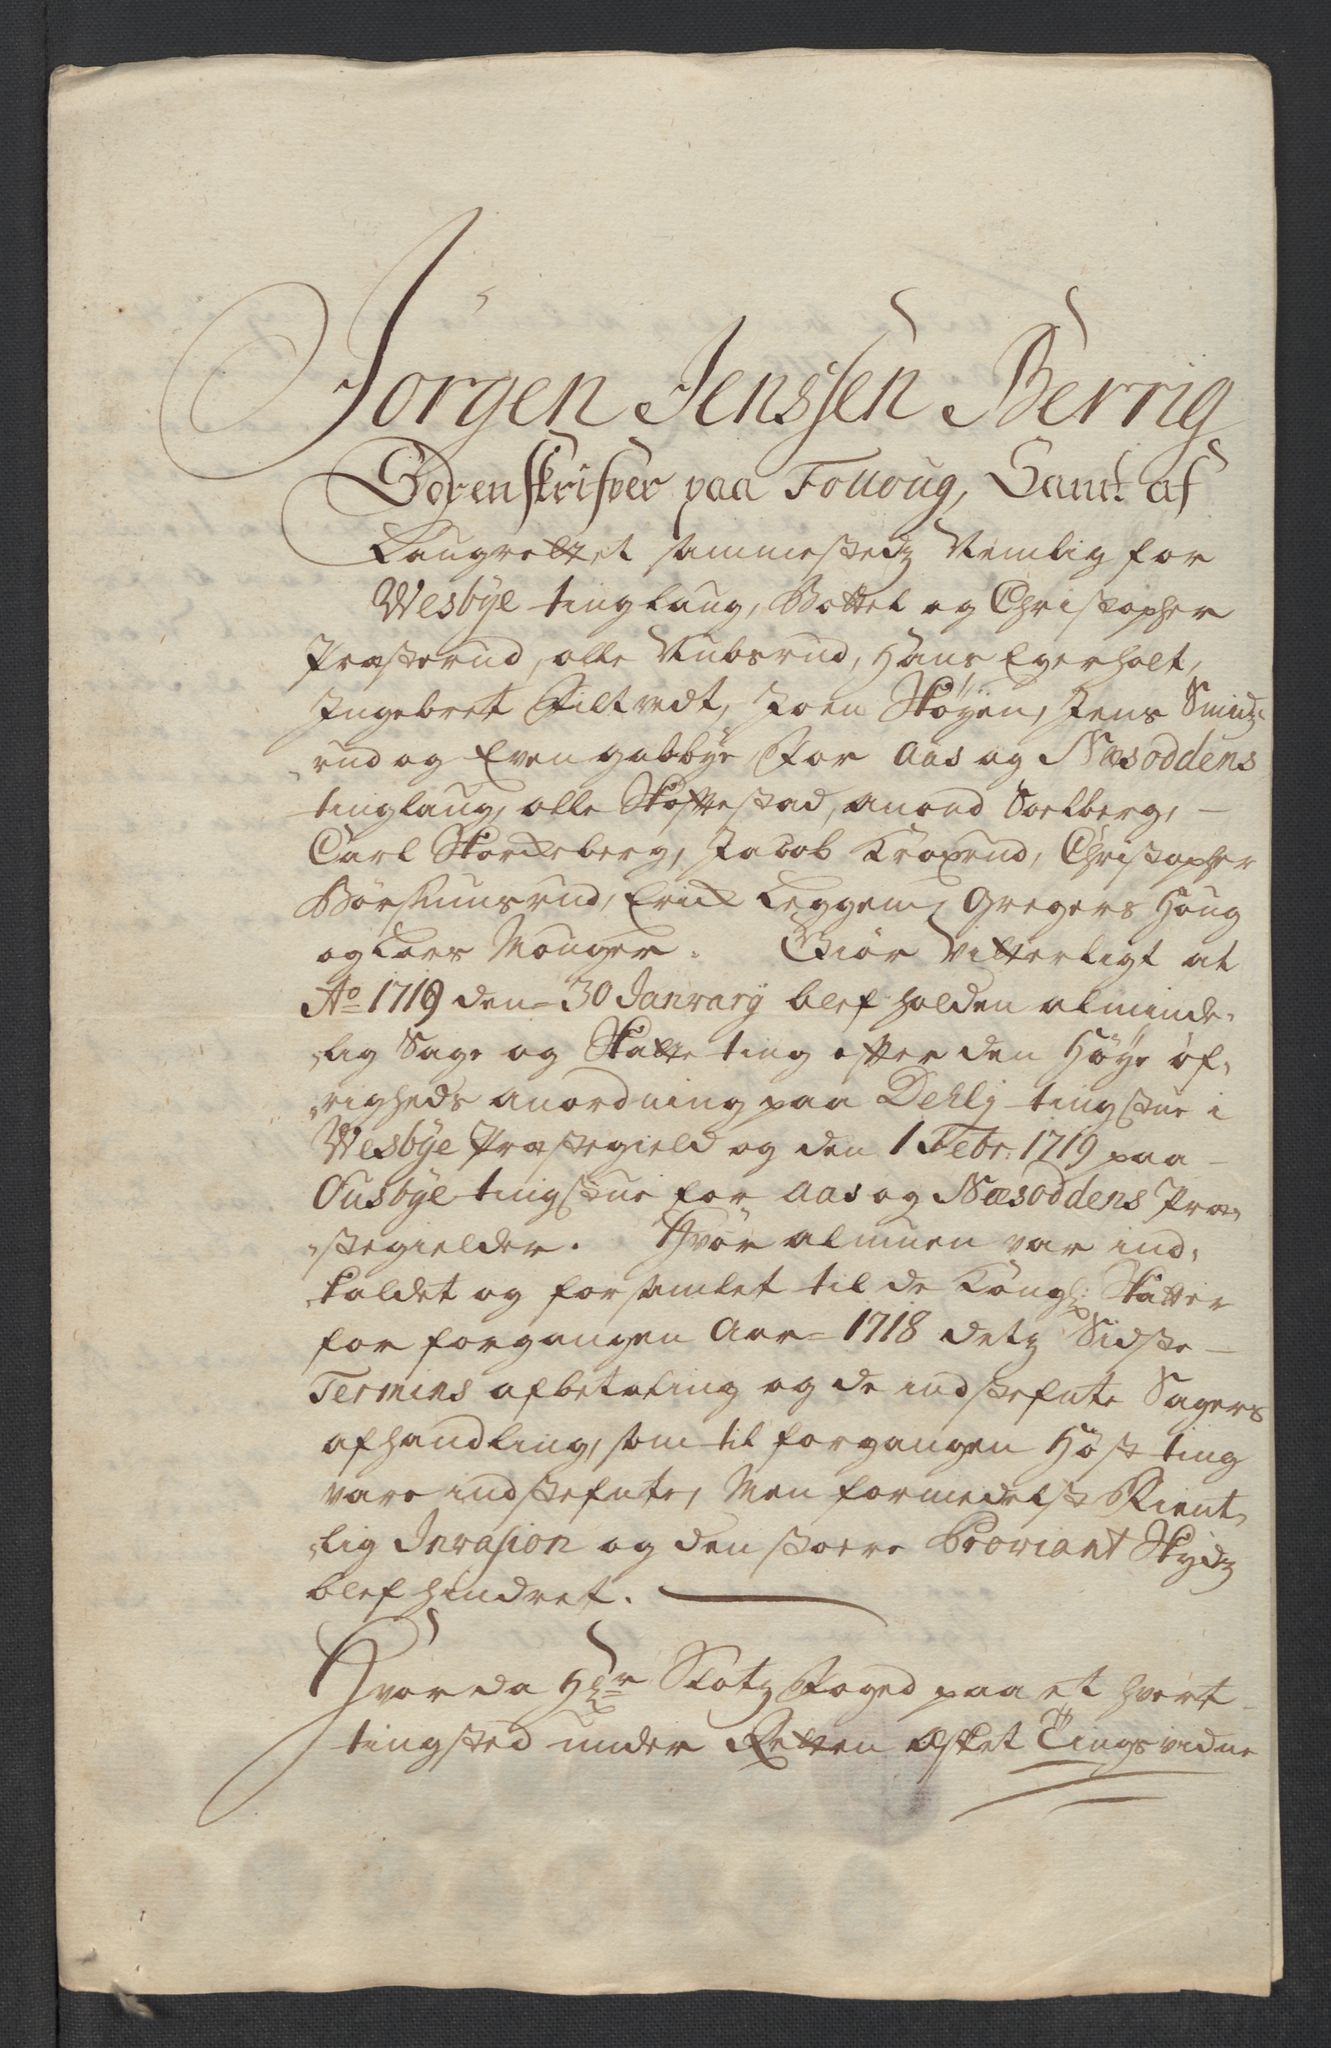 Jörgen Jenssen Berrig
Sorenskrifver paa Folloug, Samt af
Laugrettet sammestedz Nemlig for
Wesbÿe tinglaug, Bottel og Christopher
Præsterud, olle Nubsrud, Hans Egerholt,
Ingebret Filtvedt, Joen Skøÿen, Jens Smidz-
rud og Even gabbÿe, For Aas og Næsoddens
tinglaug, olle Skoftestad, anond Soelberg,
Carl Storcheberg, Jacob Kroxrud, Christopher
Børsumsrud, Erich Leggem, Gregers Houg
og Lars Monger. Giør Vitterligt at
Ao 1719 den 30 Janvarij blef holden alminde-
lig Sage og Skatte ting efter den Høÿe øf-
righeds anordning paa Dehlj tingstue i
Wesbÿe Præstegield og den 1 Febr: 1719 paa
Ousbÿe tingstue for Aas og Næsoddens Præ-
stegielder. Hvor almuen var ind-
kaldet og forsamlet til de Kongl: Skatter
for forgangen Aar 1718 detz Sidste
Termins afbetaling og de indstefnte Sagers
afhandling, som til forgangen Høst ting
vare indstefnte, Men formedelst Fient-
lig Invasion og den stoere Proviant Skydz
blef hindret.
Hvor da Hr Slotz Foged paa et hvert
tingsted under Retten æsket Tingsvidne